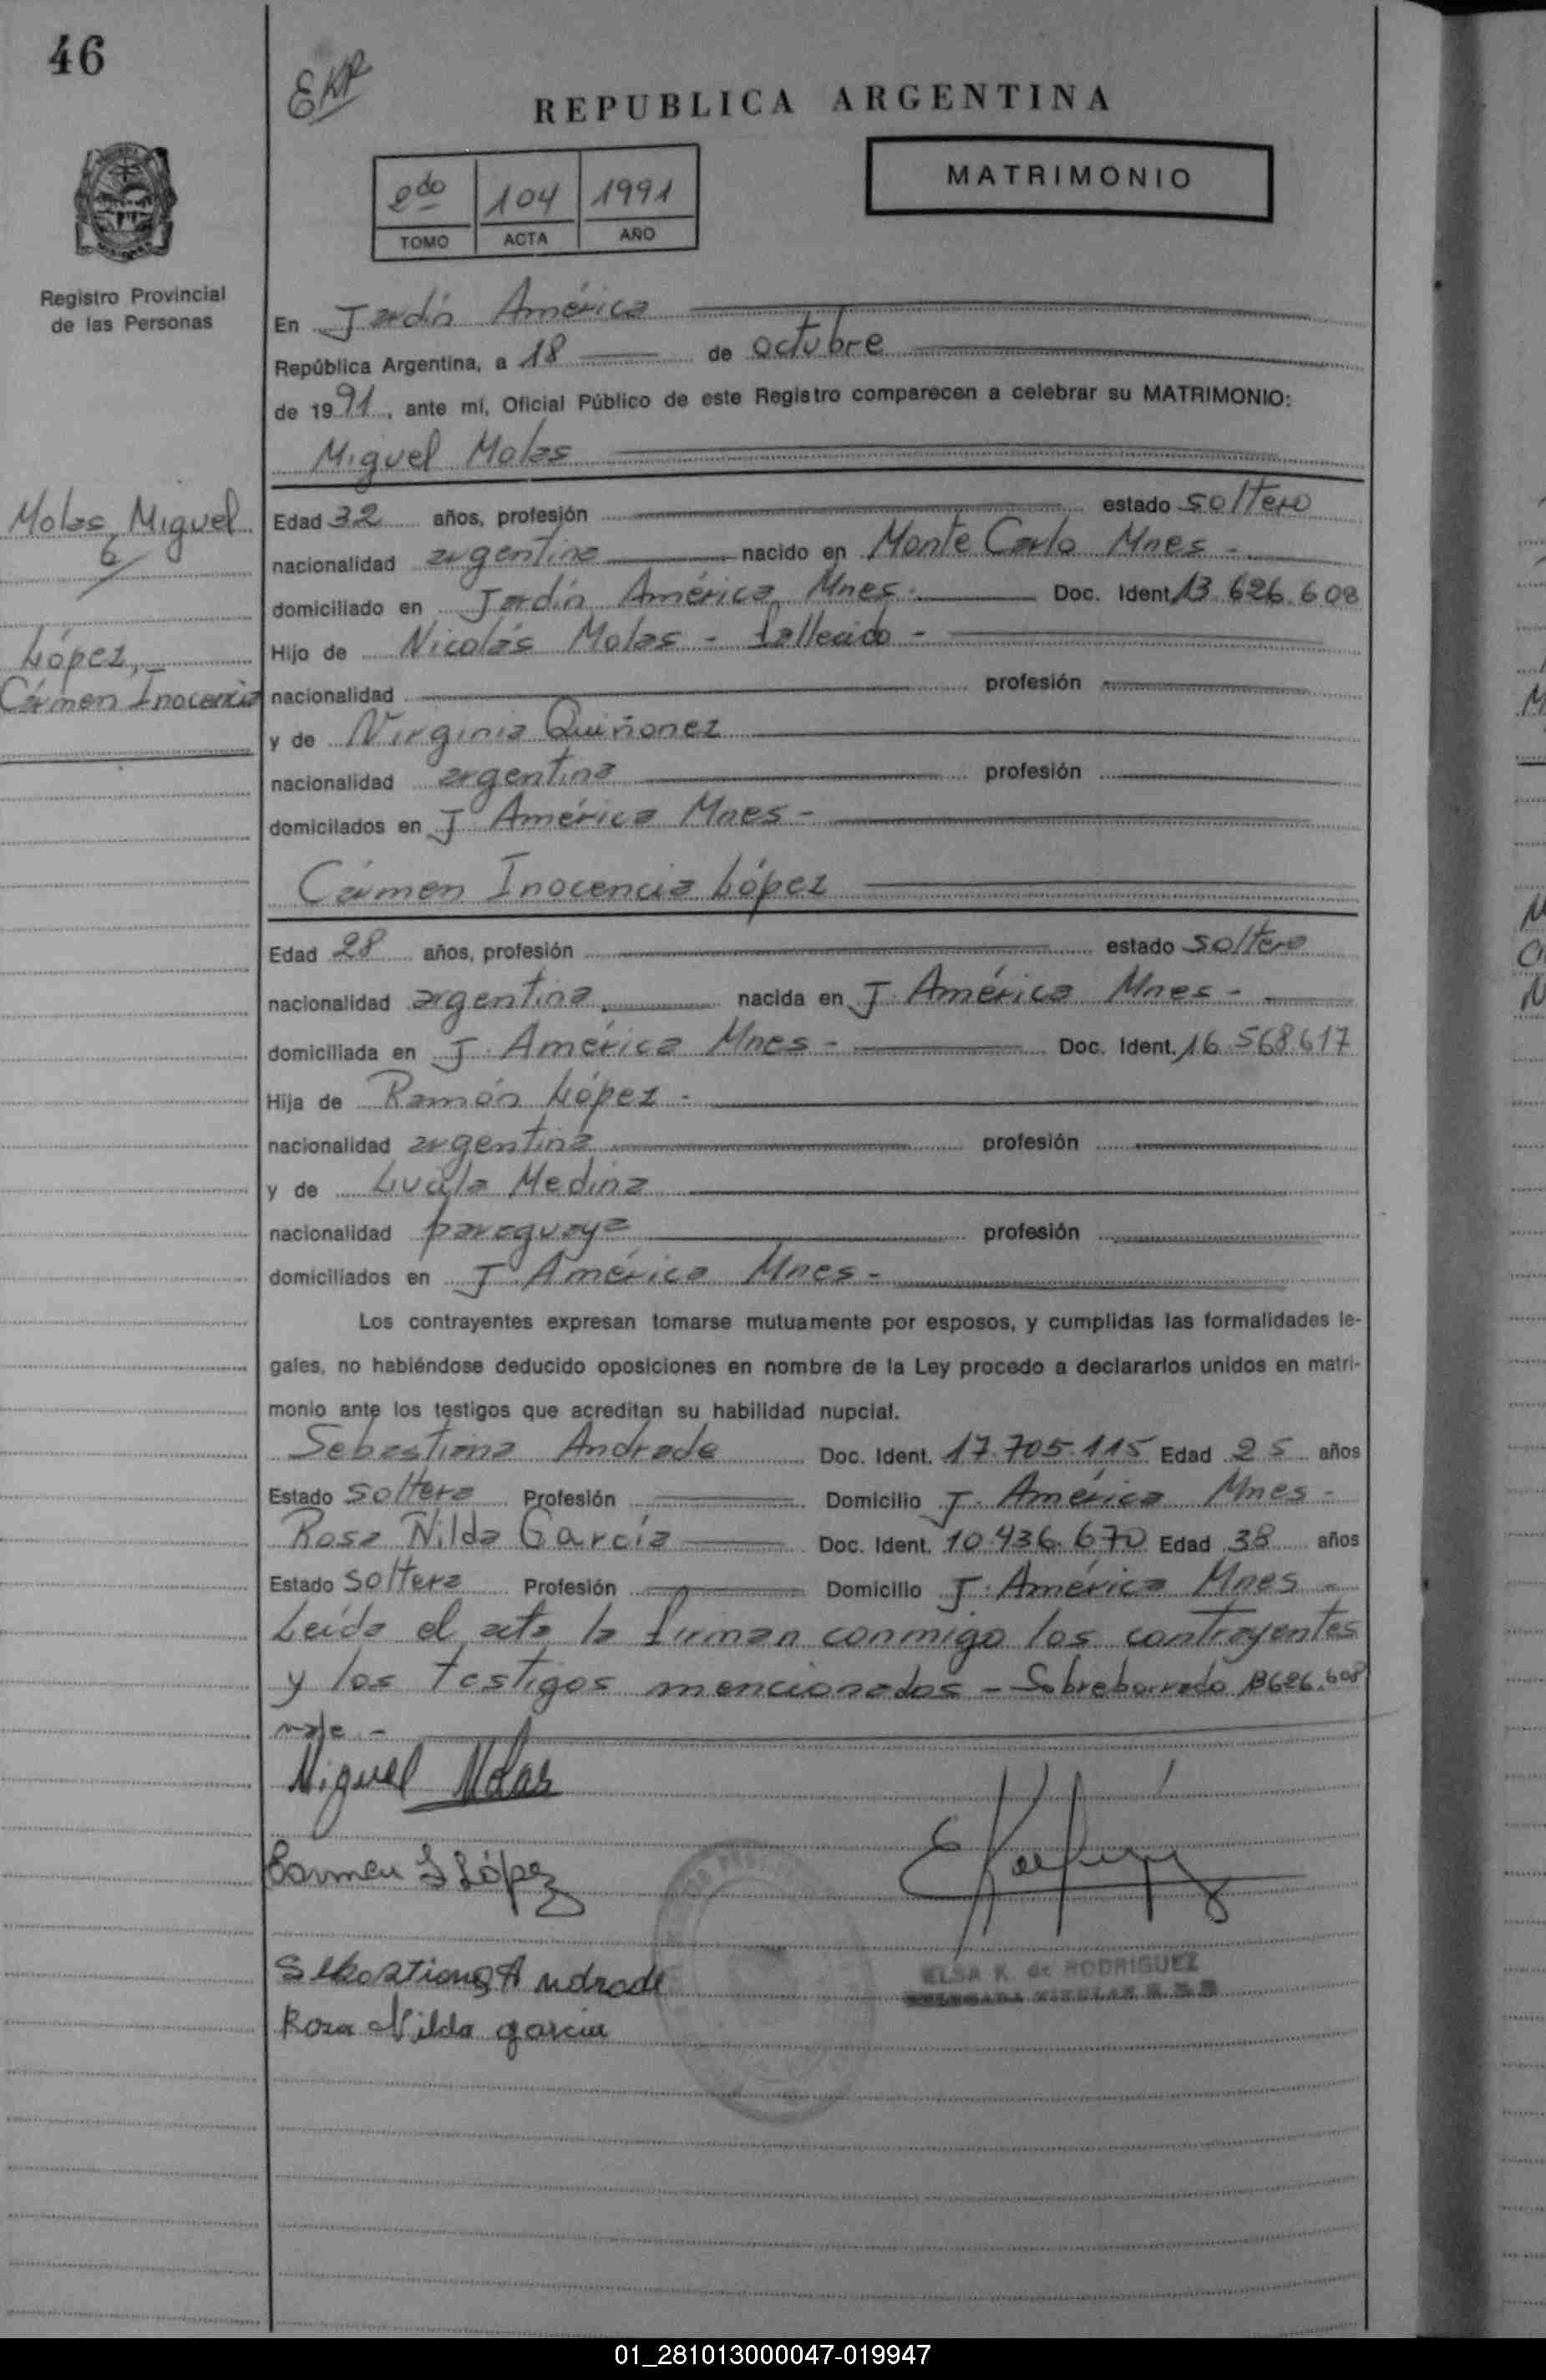 46
EKR
REPUBLICA ARGENTINA
2do 104 1991
TOMO ACTA AÑO
MATRIMONIO
Registro Provincial
de las Personas
En Jardín América
República Argentina, a 18 de octubre
de 1991, ante mí, Oficial Público de este Registro comparecen a celebrar su MATRIMONIO:
Miguel Molas
Molas, Miguel
López,
Cármen Inocencia
Edad 32 años, profesión estado soltero
nacionalidad argentina nacido en Monte Carlo Mnes -
domiciliado en Jardín América Mnes. Doc. Ident. 13.626.608
Hijo de Nicolás Molas - fallecido -
nacionalidad profesión
y de Virginia Quiñonez
nacionalidad argentina profesión
domicilados en J América Mnes -
Cármen Inocencia López
Edad 28 años, profesión estado soltera
nacionalidad argentina nacida en J. América Mnes -
domiciliada en J. América Mnes - Doc. Ident. 16.568.617
Hija de Ramón López -
nacionalidad argentina profesión
y de Medina
nacionalidad paraguaya profesión
domiciliados en J. América Mnes -
Los contrayentes expresan tomarse mutuamente por esposos, y cumplidas las formalidades le-
gales, no habiéndose deducido oposiciones en nombre de la Ley procedo a declararlos unidos en matri-
monio ante los testigos que acreditan su habilidad nupcial.
Sebastiana Andrade Doc. Ident. 17.705.115 Edad 25 años
Estado soltera Profesión Domicilio J. América Mnes -
Rosa Nilda García Doc. Ident. 10.436.670 Edad 38 años
Estado soltera Profesión Domicilio J. América Mnes -
Leída el acta la firman conmigo los contrayentes
y los testigos mencionados - Sobreborrado 13626.608
vale -
Miguel Molas
Carmen I López
Sebastiana Andrade
Rosa Nilda garcia
ELSA K. de RODRIGUEZ
01_281013000047-019947